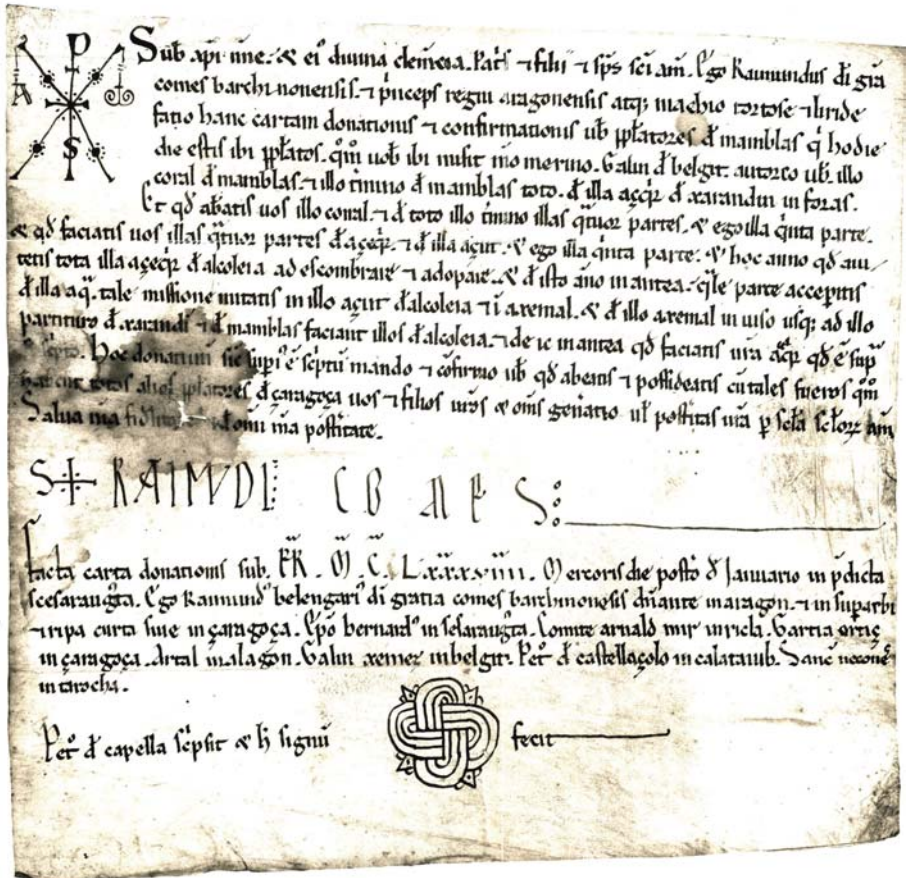 Sub xpi nne. & ei' divina clemēcia. Pat's ⁊ filii ⁊ sp̄s sc̄i am̄. Ego Raimundus di gr̄a
comes barchinonensis. ⁊ p̄nceps regni aragonensis atq; marchio tortose ⁊ liride
facio hanc cartam donationis ⁊ confirmationis ub̄ pp̄latores đ mamblas q̄ hodie
die estis ibi pp̄latos. q̄m uob̄ ibi misit mō merino. Galin đ belgit. autorco ub̄. illo
coral đ mamblas. ⁊ illo t̄mino đ mamblas toto. đ illa açeq̄r đ xarandin in foras.
Et qđ abeatis uos illo corral. ⁊ đ toto illo t̄mino illas q̄tuor partes. & ego illa q̄nta parte.
& qđ faciatis uos illas q̄tuor partes đ açeq̄r. ⁊ đ illa açut. & ego illa q̄nta parte. & hoc anno qđ
tetis tota illa açeq̄r đ alcoleia ad escombrare ⁊ adopare. & đ isto año in antea. q̄le parte acceperitis
đ illa aq̄. tale missione mitatis in illo açut đ alcoleia ⁊ ī axemal. & đ illo axemal in iuso usq; ad illo
partituro đ xarandi ⁊ đ mamblas faciant illos đ alcoleia. ⁊ de ic in antea qđ faciatis ur̄a açeq̄r qđ ē sup̄
Hoc donatiuū sic sup̄i' ē sc̄ptū mando ⁊ cōfirmo ub̄ qđ abeatis ⁊ possideatis cū tales fueros q̄m
totos alios pp̄latores đ çaragoça uos ⁊ filios ur̄os & om̄is gen̄atio uł post̄itas ur̄a p̄ sc̄la sc̄lor̄ am̄
Salua m̄a fid̄litate ⁊ đ om̄i m̄a post̄itate.
S+ RAIMVDI CO M E S
Facta carta donationis sub. ER̄. M̄. C̄. Lxxxxviiii. Mercoris die posto đ Januario in p̄dicta
scesarauḡta. Ego Raimund' belengari' di gratia comes barchinonēsis dn̄ante in aragon. ⁊ in suprarbi
⁊ ripa curta siue in çaragoça. Ep̄o bernard' in sesarauḡta. Comite arnald mir in ricla. Garcia ortiç
in çaragoça. Artal in alagon. Galin xemeç in belgit. Pet̊ đ castellaçolo in calataiub. Sanc'
in tarocha.
Pet̊ đ capella sc̄psit & h̄ signū fecit